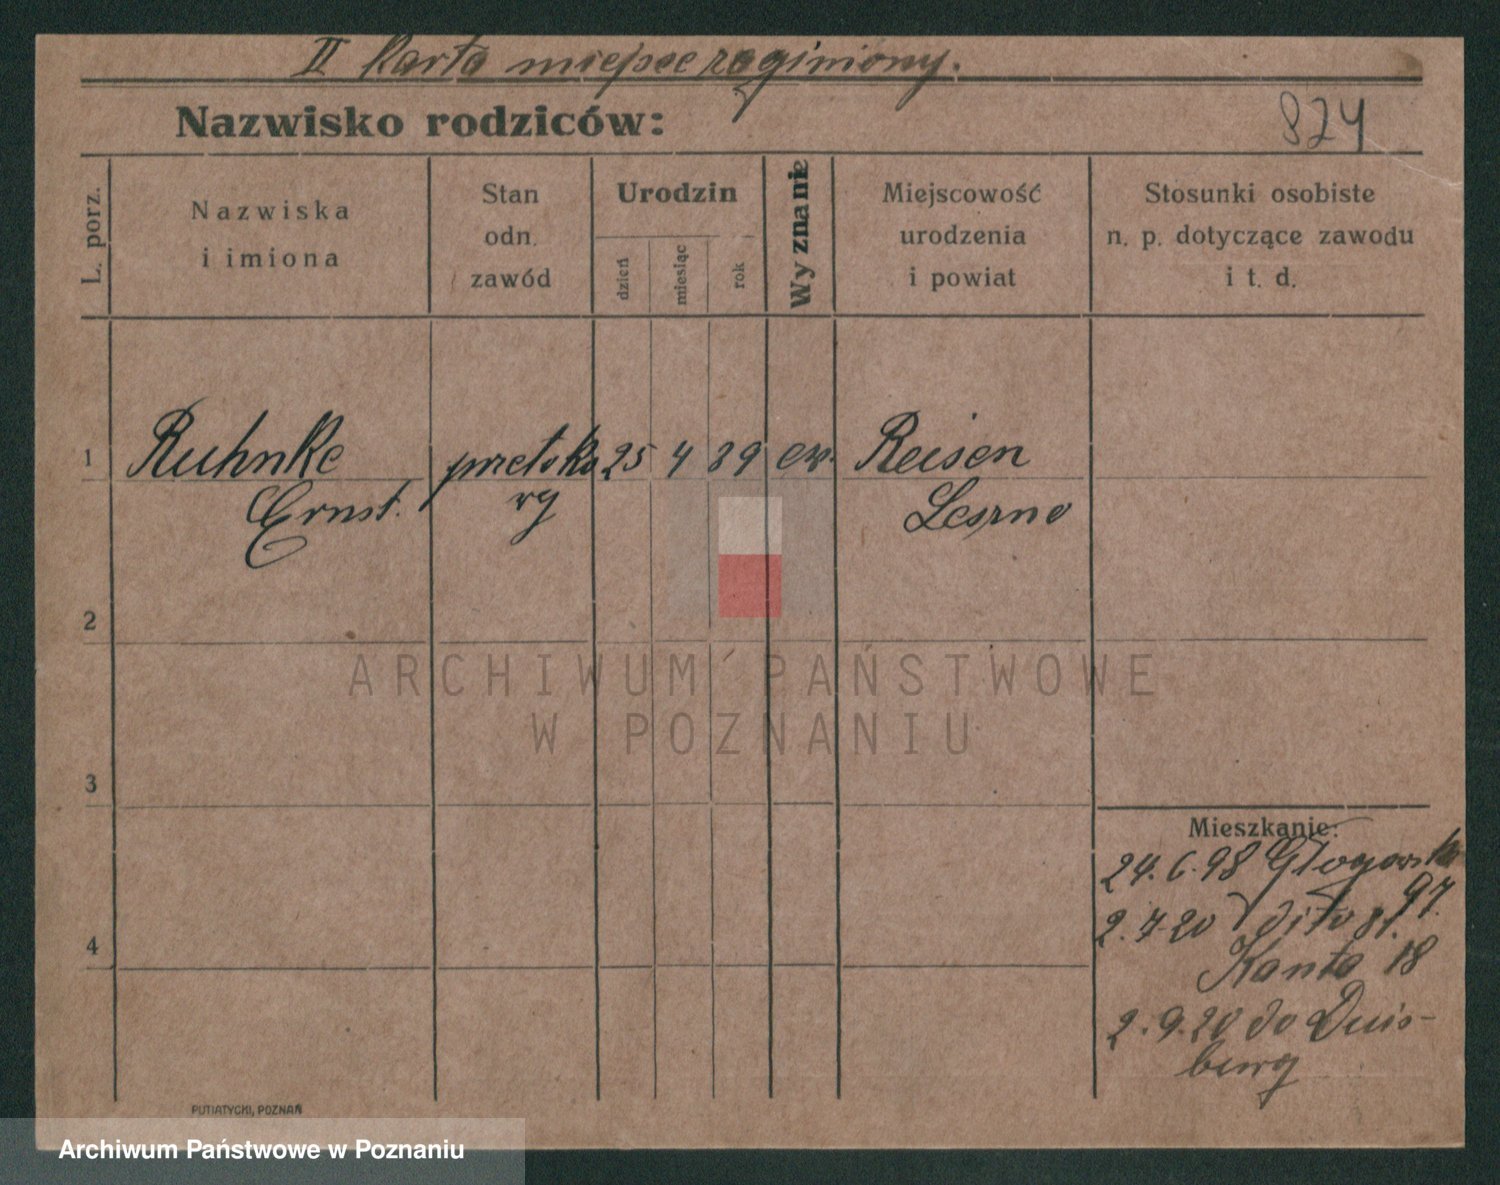 II Karta miejsce zaginiony.
Nazwisko rodziców:
824
L. porz.
Nazwiska
i imiona
Stan
odn.
zawód
Urodzin
dzień
miesiąc
rok
Wyznanie
Miejscowość
urodzenia
i powiat
Stosunki osobiste
n. p. dotyczące zawodu
i t. d.
1 Ruhnke 25 4 89 ew. Reisen
Ernst. Leszno
2
ARCHIWUM PAŃSTWOWE
W POZNANIU
3
Mieszkanie:
24. 6. 98 Głogowska
97.
2. 7. 20 dito
Kanta 18
4
2. 9. 20 do Duis-
burg
PUTIATYCKI, POZNAŃ
Archiwum Państwowe w Poznaniu